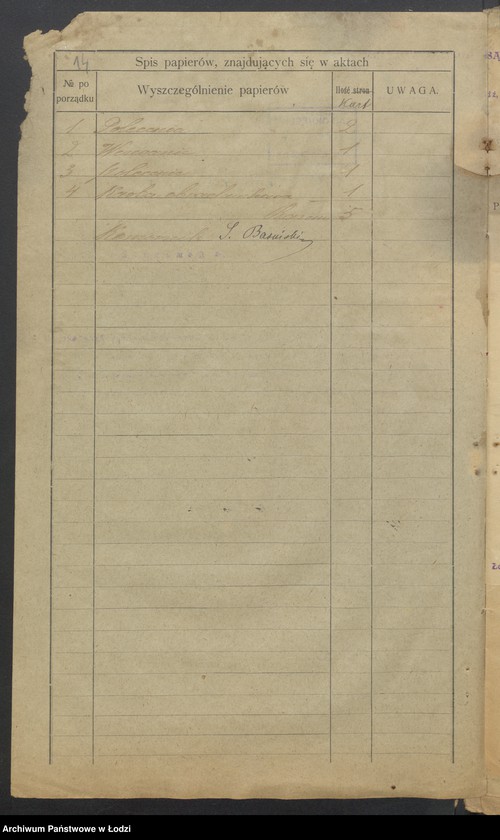 14
Spis papierów, znajdujących się w aktach
№ po porządku
Wyszczególnienie papierów
Ilość stron
Kart
UWAGA.
1 Polecenie 2
2 Wezwanie 1
3 1
4 1
Razem 5
S. Basiński
Archiwum Państwowe w Łodzi